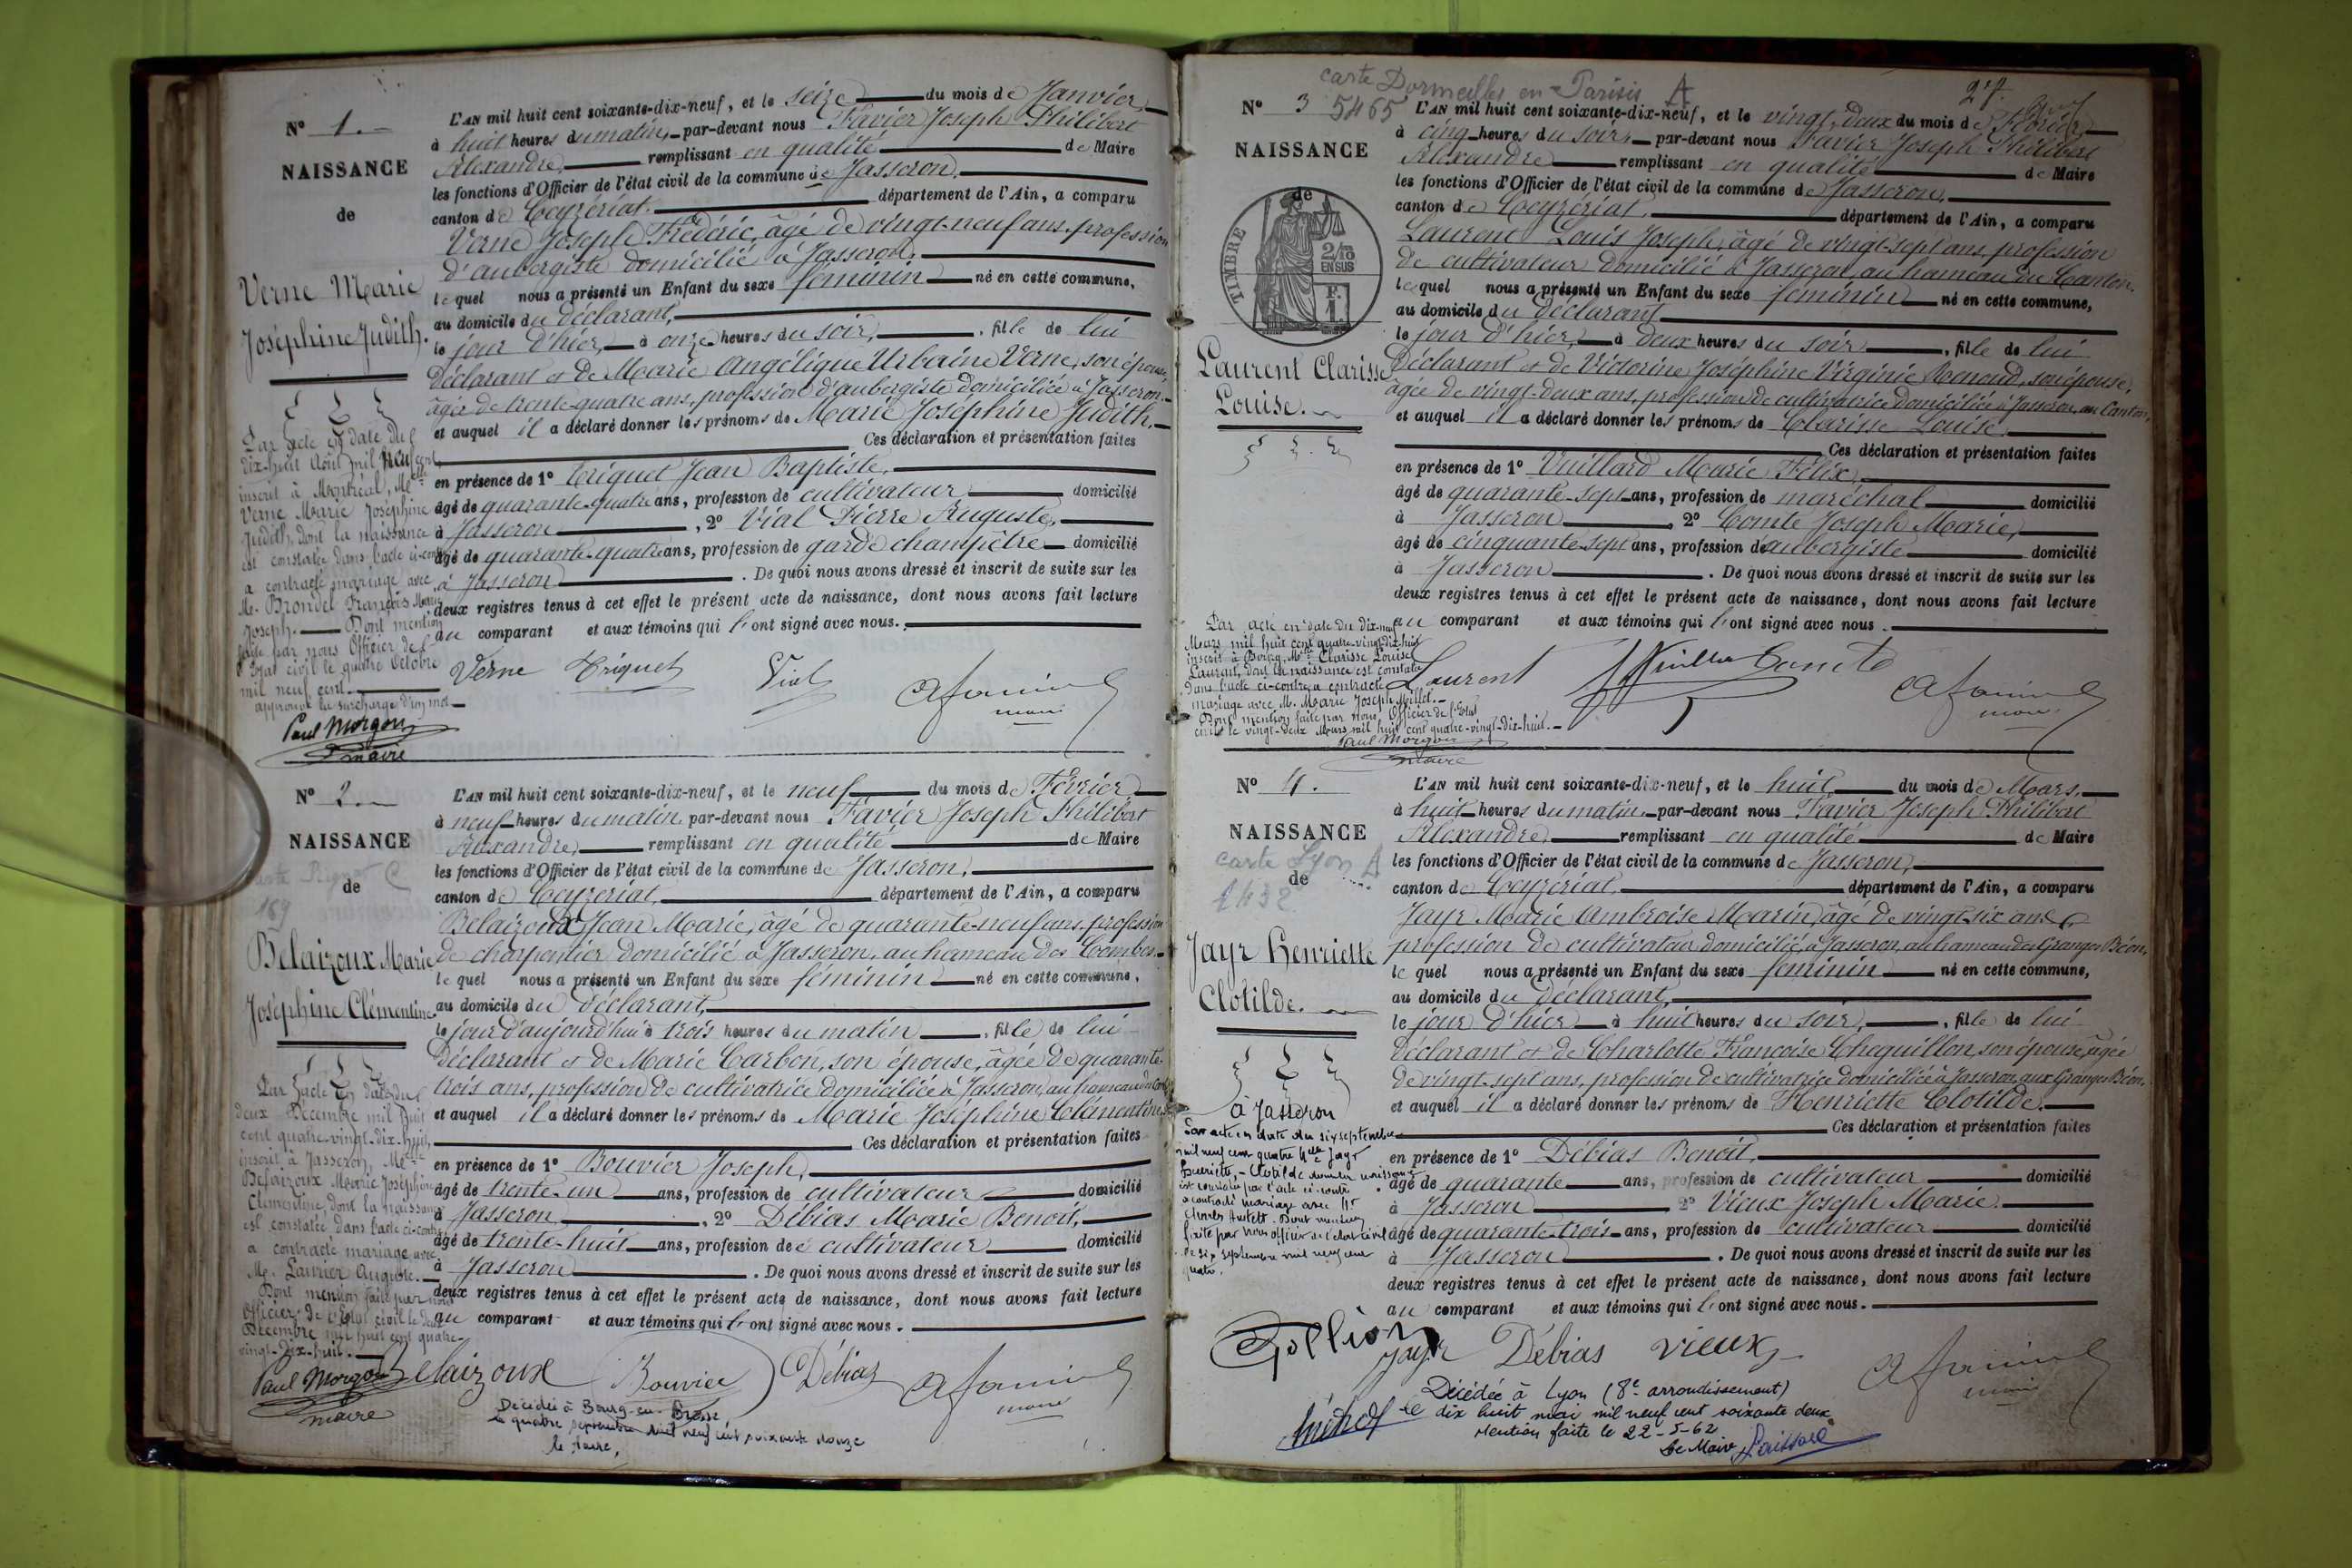 N° 1.
NAISSANCE
de
Verne Marie
Joséphine Judith.
Par acte en date du
dix-huit Août mil neuf cent,
inscrit à Montréal, Melle
Verne Marie Joséphine
Judith, dont la naissance
est constatée dans l'acte ci-contre
a contracté mariage avec
M. Brondel François Marie
Joseph. Dont mention
faite par nous Officier de l'
Etat civil le quatre Octobre
mil neuf cent.
approuvé la surcharge d'un mot
Paul Morgon
maire
L'AN mil huit cent soixante-dix-neuf, et le seize du mois de Janvier
à huit heures du matin, par-devant nous Favier Joseph Philibert
Alexandre remplissant en qualité de Maire
les fonctions d'Officier de l'état civil de la commune de Jasseron,
canton de Ceyzériat département de l'Ain, a comparu
Verne Joseph Frédéric, âgé de vingt-neuf ans, profession
d'aubergiste domicilié à Jasseron,
lequel nous a présenté un Enfant du sexe féminin né en cette commune,
au domicile du déclarant,
le jour d'hier, à onze heures du soir, fille de lui
déclarant et de Marie Angélique Urbaine Verne, son épouse,
âgée de trente-quatre ans, profession d'aubergiste domiciliée à Jasseron
et auquel il a déclaré donner les prénoms de Marie Joséphine Judith.
Ces déclaration et présentation faites
en présence de 1° Triquet Jean Baptiste,
âgé de quarante-quatre ans, profession de cultivateur domicilié
à Jasseron, 2° Vial Pierre Auguste,
âgé de quarante-quatre ans, profession de garde champêtre domicilié
à Jasseron. De quoi nous avons dressé et inscrit de suite sur les
deux registres tenus à cet effet le présent acte de naissance, dont nous avons fait lecture
au comparant et aux témoins qui l'ont signé avec nous.
Verne Triquet Vial
maire
N° 2.
NAISSANCE
de
169
Belaizoux Marie
Joséphine Clémentine
Par acte en date du
deux Décembre mil huit
cent quatre-vingt-dix-huit,
inscrit à Jasseron, Melle
Belaizoux Marie Joséphine
Clémentine, dont la naissance
est constatée dans l'acte ci-contre,
a contracté mariage avec
M. Laurier Auguste.
Dont mention faite par nous
Officier de l'Etat civil le deux
Décembre mil huit cent quatre-
vingt-dix-huit.
Paul Morgon
maire
L'AN mil huit cent soixante-dix-neuf, et le neuf du mois de Février
à neuf heures du matin par-devant nous Favier Joseph Philibert
Alexandre, remplissant en qualité de Maire
les fonctions d'Officier de l'état civil de la commune de Jasseron,
canton de Ceyzériat, département de l'Ain, a comparu
Belaizoux Jean Marie, âgé de quarante-neuf ans, profession
de charpentier domicilié à Jasseron, au hameau des Combes
lequel nous a présenté un Enfant du sexe féminin né en cette commune,
au domicile du déclarant,
le jour d'aujourd'hui à trois heures du matin, fille de lui
déclarant et de Marie Carbon, son épouse, âgée de quarante-
trois ans, profession de cultivatrice domiciliée à Jasseron, au hameau des
et auquel il a déclaré donner les prénoms de Marie Joséphine Clémentine
Ces déclaration et présentation faites
en présence de 1° Bouvier Joseph,
âgé de trente-un ans, profession de cultivateur domicilié
à Jasseron, 2° Débias Marie Benoit,
âgé de trente-huit ans, profession de cultivateur domicilié
à Jasseron. De quoi nous avons dressé et inscrit de suite sur les
deux registres tenus à cet effet le présent acte de naissance, dont nous avons fait lecture
au comparant et aux témoins qui l'ont signé avec nous.
Belaizoux Bouvier Débias
maire
Décédée à Bourg-en-Bresse
le quatre septembre mil neuf cent soixante douze
le Maire,
27.
carte Dormeilles en Parisis A
5465
N° 3
NAISSANCE
de
TIMBRE
2/10
EN SUS
F.
1.
Laurent Clarisse
Louise.
Par acte en date du dix-neuf
Mars mil huit cent quatre-vingt-dix-huit
inscrit à Bourg, Melle Clarisse Louise
Laurent, dont la naissance est constatée
dans l'acte ci-contre a contracté
mariage avec M. Marie Joseph Millet.
Dont mention faite par nous, Officier de l'Etat
civil le vingt-deux Mars mil huit cent quatre-vingt-dix-huit.
Paul Morgon
maire
L'AN mil huit cent soixante-dix-neuf, et le vingt-deux du mois de Février
à cinq heures du soir, par-devant nous Favier Joseph Philibert
Alexandre remplissant en qualité de Maire
les fonctions d'Officier de l'état civil de la commune de Jasseron,
canton de Ceyzériat, département de l'Ain, a comparu
Laurent Louis Joseph, âgé de vingt-sept ans, profession
de cultivateur domicilié à Jasseron, au hameau du Canton,
lequel nous a présenté un Enfant du sexe féminin né en cette commune,
au domicile du déclarant
le jour d'hier, à deux heures du soir, fille de lui
déclarant et de Victorine Joséphine Virginie Renoud, son épouse,
âgée de vingt-deux ans, profession de cultivatrice domiciliée à Jasseron, au Canton,
et auquel il a déclaré donner les prénoms de Clarisse Louise
Ces déclaration et présentation faites
en présence de 1° Vuillard Marie Félix
âgé de quarante-sept ans, profession de maréchal domicilié
à Jasseron, 2° Comte Joseph Marie,
âgé de cinquante-sept ans, profession d'aubergiste domicilié
à Jasseron. De quoi nous avons dressé et inscrit de suite sur les
deux registres tenus à cet effet le présent acte de naissance, dont nous avons fait lecture
au comparant et aux témoins qui l'ont signé avec nous.
Laurent Comte
maire
N° 4.
NAISSANCE
carte Lyon A
de
1432
Jayr Henriette
Clotilde.
à Jasseron
Par acte en date du six septembre
mil neuf cent quatre Melle Jayr
Henriette-Clotilde dont la naissance
est constatée par l'acte ci-contre
a contracté mariage avec Mr
Dont mention
faite par nous officier de l'état civil
le six septembre mil neuf cent
quatre.
L'AN mil huit cent soixante-dix-neuf, et le huit du mois de Mars,
à huit heures du matin, par-devant nous Favier Joseph Philibert
Alexandre, remplissant en qualité de Maire
les fonctions d'Officier de l'état civil de la commune de Jasseron,
canton de Ceyzériat, département de l'Ain, a comparu
Jayr Marie Ambroise Marin, âgé de vingt-six ans,
profession de cultivateur domicilié à Jasseron, au hameau des Granges Béon,
lequel nous a présenté un Enfant du sexe féminin né en cette commune,
au domicile du déclarant,
le jour d'hier à huit heures du soir, fille de lui
déclarant et de Charlotte Françoise Chequillon, son épouse, âgée
de vingt-sept ans, profession de cultivatrice domiciliée à Jasseron, aux Granges Béon,
et auquel il a déclaré donner les prénoms de Henriette Clotilde.
Ces déclaration et présentation faites
en présence de 1° Débias Benoit,
âgé de quarante ans, profession de cultivateur domicilié
à Jasseron 2° Vieux Joseph Marie.
âgé de quarante-trois ans, profession de cultivateur domicilié
à Jasseron. De quoi nous avons dressé et inscrit de suite sur les
deux registres tenus à cet effet le présent acte de naissance, dont nous avons fait lecture
au comparant et aux témoins qui l'ont signé avec nous.
Jayr Débias Vieux
maire
Décédée à Lyon (8e arrondissement)
le dix huit mai mil neuf cent soixante deux
Mention faite le 22-5-62
Le Maire